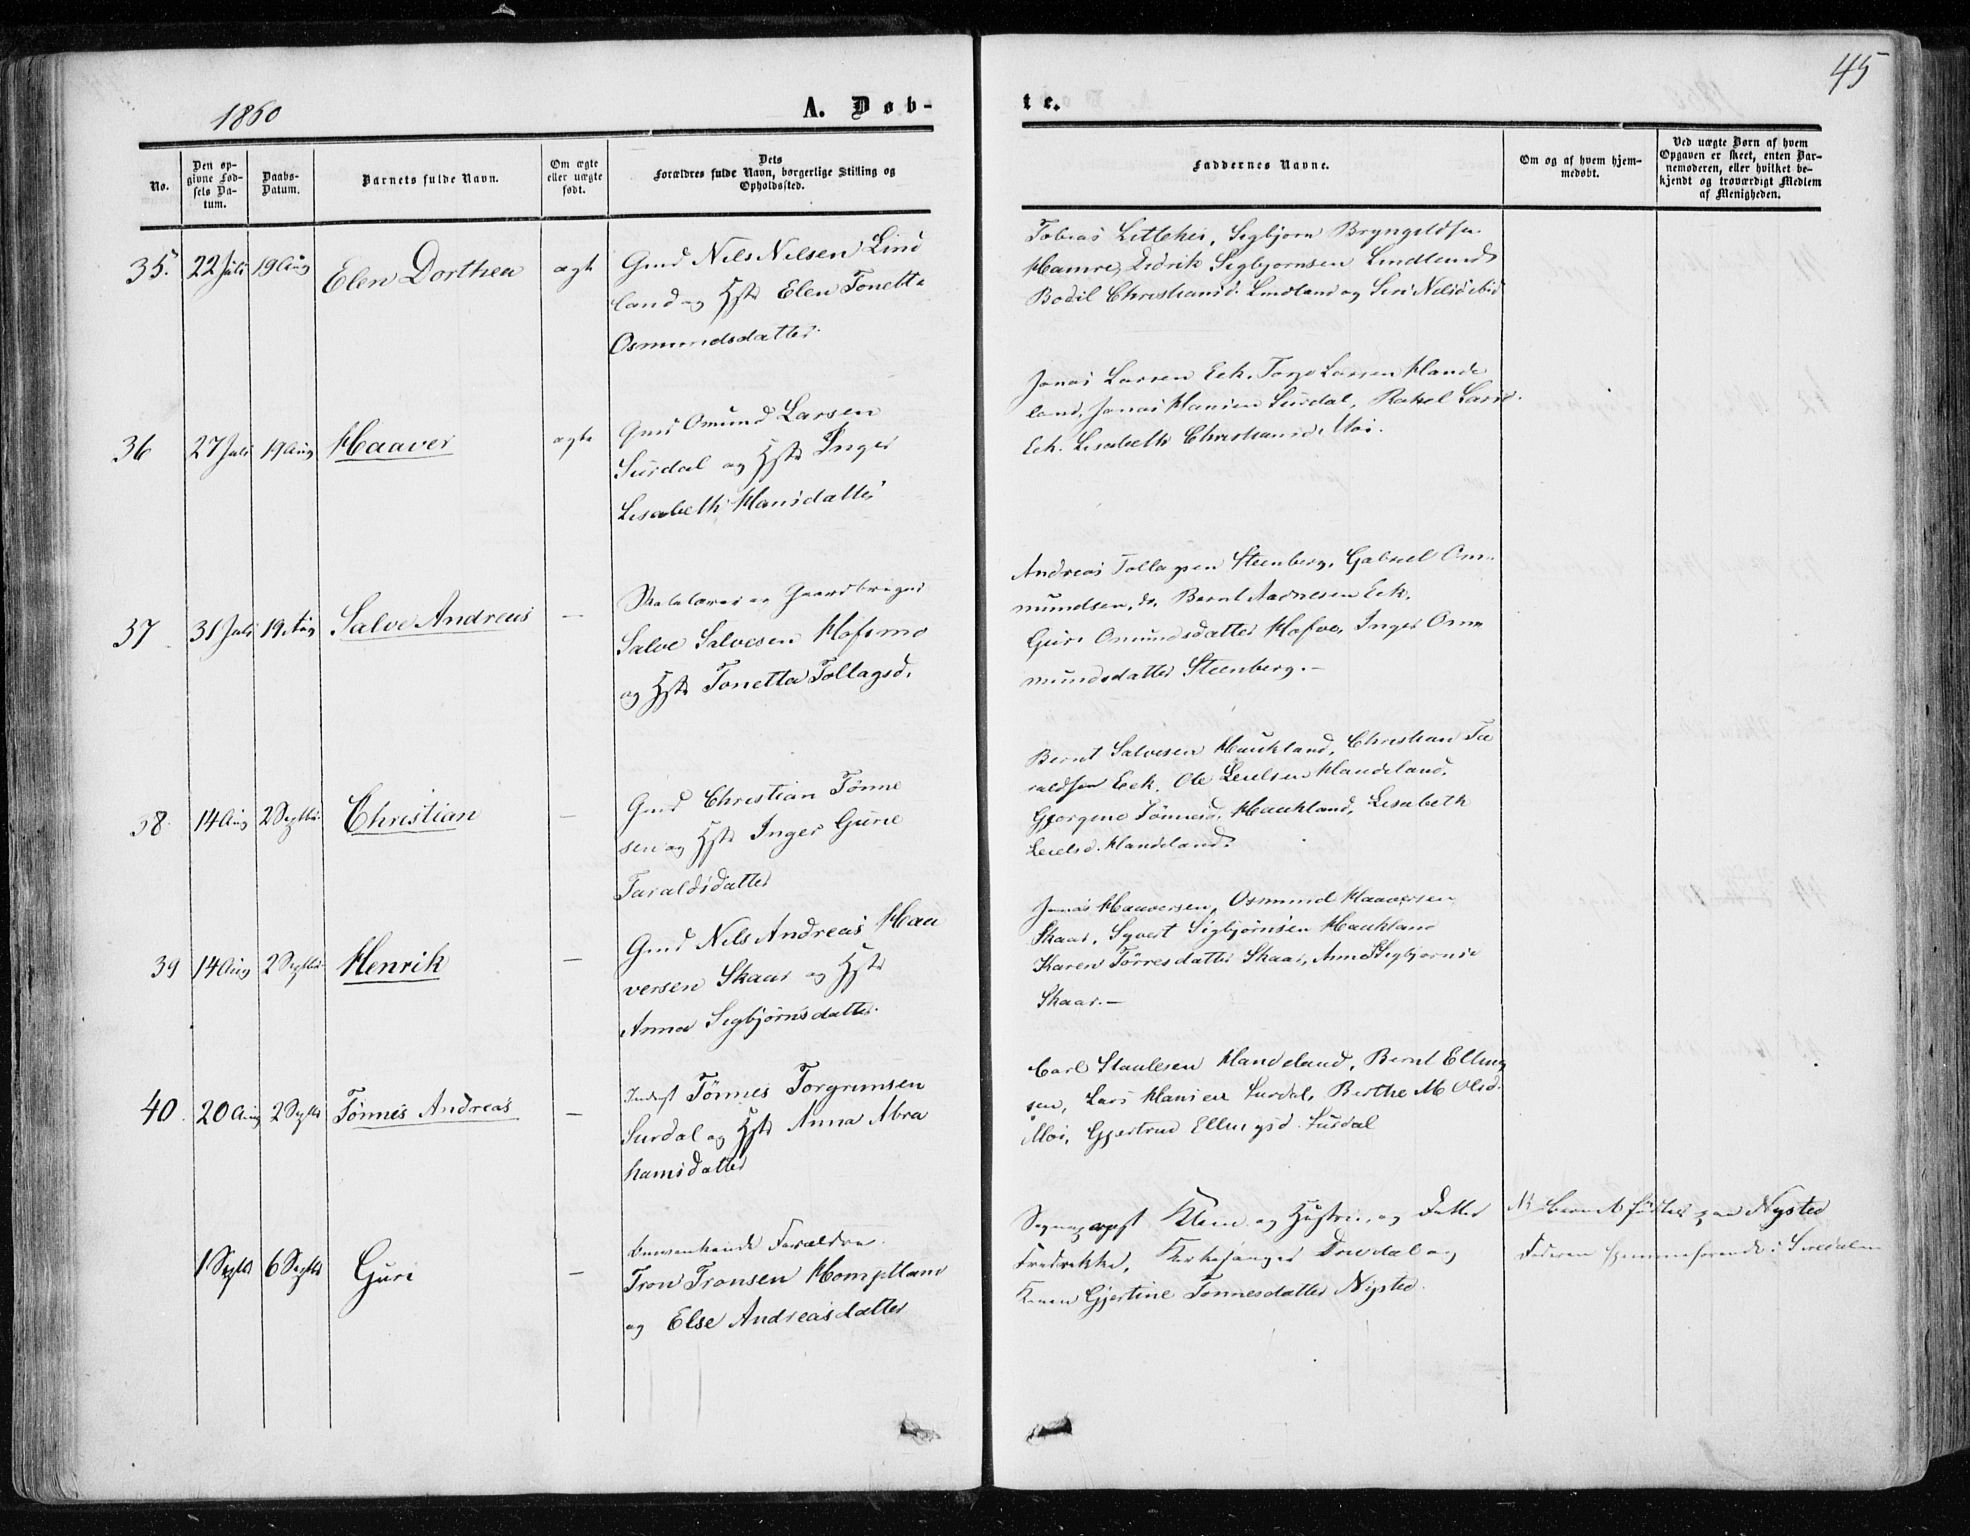 45
1860
A. Døb-
te.
No.
Den op-
givne Fød-
sels Da-
tum.
Daabs-
Datum.
Barnets fulde Navn.
Om ægte
eller uægte
født.
Dets
Forældres fulde Navn, borgerlige Stilling og
Opholdssted.
Faddernes Navne.
Om og af hvem hjem-
medøbt.
Ved uægte Børn af hvem
Opgaven er skeet, enten Bar-
nemoderen, eller hvilket be-
kjendt og troværdigt Medlem
af Menigheden.
35. 22 Juli 19 Aug Elen Dorthea ægte
Gmd Nils Nilsen Lind
land og Hst Elen Tonette
Osmundsdatter
Tobias Bryngeldsen
Hamre, Didrik Sigbjørnsen Lindland
Bodil Christiansd. Lindland og Siri Nilsd ibid
36 27 Juli 19 Aug Haaver ægte
Gmd Omund Larsen
Surdal og Hst Inger
Lisabeth Hansdatter
Jonas Larsen Eek, Larsen Hande
land, Jonas Hansen Surdal, Rakel Larsd.
Eek. Lisabeth Christiansd. Moi.
37 31 Juli 19 Aug Salve Andreas —
Gaardbruger
Salve Salvesen Hofsmo
og Hst Tonetta Tollagsd.
Andreas Tollagsen Steenberg, Gabriel Om-
mundsen, do, Bernt Aadnesen Eek,
Guri Omundsdatter, Inger Om
mundsdatter Steenberg. —
38. 14 Aug 2 Septbr Christian —
Gmd Christian Tønne
sen og Hst Inger Gurie
Taraldsdatter
Bernt Salvesen Haukland, Christian Ta
raldsen Eek, Ole Handeland,
Gjorgine Tønnesd. Haukland, Lisabeth
Handeland.
39 14 Aug 2 Septbr Henrik —
Gmd Nils Andreas Haa
versen Skaar og Hst
Anna Sigbjørnsdatter.
Jonas Haaversen, Osmund Haaversen
Skaar, Syvert Sigbjørnsen Haukland
Karen Tørresdatter Skaar, Anna Sigbjørnsd
Skaar. —
40. 20 Aug 2 Septbr Tønnes Andreas —
Inderst Tønnes Torgrimsen
Surdal og Hst Anna Abra
hamsdatter
Carl Handeland, Bernt Elling
sen, Lars Hansen Surdal, Berthe M Olsd.
Moi, Gjertrud Ellingsd. Surdal
1 Septbr 6 Septbr Guri —
Forældre
Tron Tronsen Hompland
og Else Andreasdatter
Klem og Hustru, og Datter
Fredrikke, Kirkesanger og
Gjertine Tønnesdatter Nysted.
Barnet født paa Nysted
Faderen hjemmehørende i Siredalen